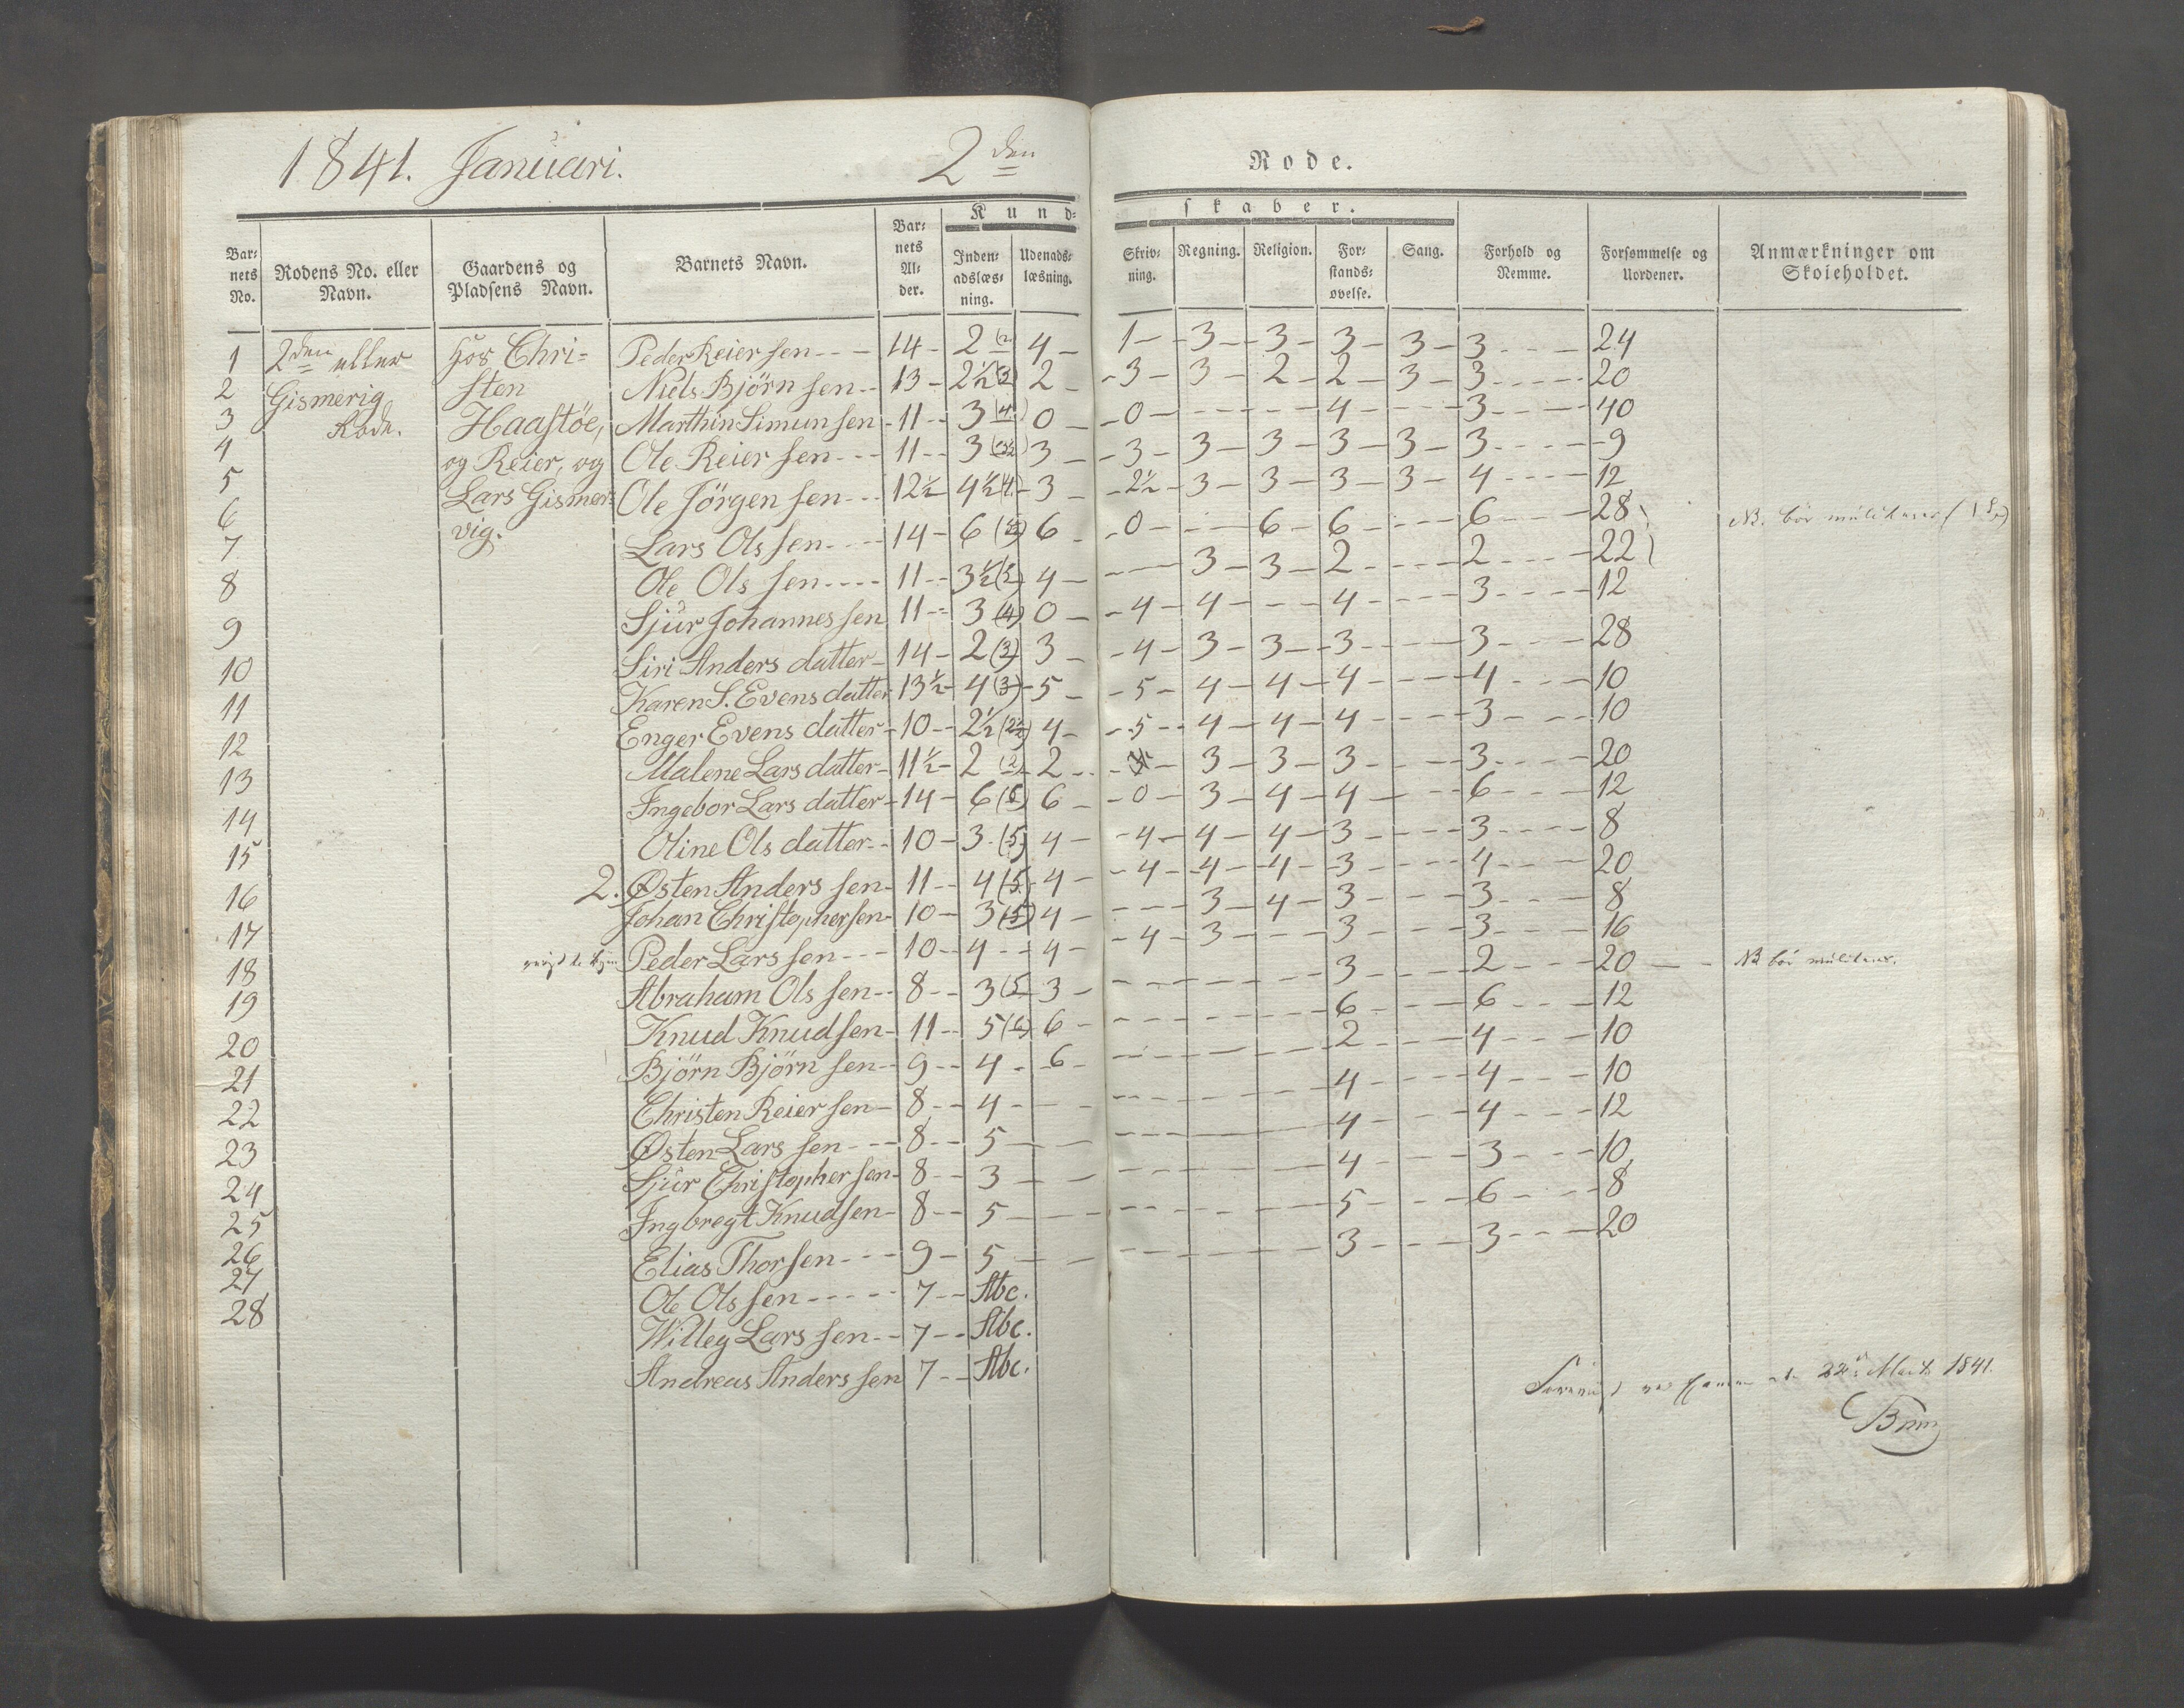 1841. Januari. 2den Rode.
Kund-skaber.
Barnets No. Rodens No. eller Navn. Gaardens og Pladsens Navn. Barnets Navn. Barnets Alder. Indenadslæsning. Udenadslæsning. Skrivning. Regning. Religion. Forstandsøvelse. Sang. Forhold og Nemme. Forsømmelse og Uordener. Anmærkninger om Skoleholdet.
1 2den eller hos Chri= Peder Reiersen 14 2 (2 4 1 3 3 3 3 3 24
2 Gismerig sten Niels Björnsen 13 2½ (3) 2 3 3 2 2 3 3 20
3 Rode. Haastöe, Marthin Simunsen 11 3 (4) 0 0 4 3 40
4 og Reier, og Ole Reiersen 11 3 3 3 3 3 3 3 3 9
5 Lars Gismer= Ole Jörgensen 12½ 4½ (4) 3 2½ 3 3 3 3 4 12
6 vig. Lars Olssen 14 6 6 0 6 6 6 28 NB. bör
7 Ole Olssen 11 3½ 4 3 3 2 2 22
8 Sjur Johannessen 11 3 (4) 0 4 4 4 3 12
9 Siri Andersdatter 14 2 (3) 3 4 3 3 3 3 28
10 Karen S. Evensdatter 13½ 4 (3) 5 5 4 4 4 4 10
11 Enger Evensdatter 10 2½ (2½) 4 5 4 4 4 3 10
12 Malene Larsdatter 11½ 2 (2) 2 3 3 3 3 20
13 Ingebor Larsdatter 14 6 6 0 3 4 4 6 12
14 Oline Olsdatter 10 3 (5) 4 4 4 4 3 3 8
15 2. Østen Anderssen 11 4 (5) 4 4 4 4 3 4 20
16 Johan Christophersen 10 3 (5) 4 3 4 3 3 8
17 Peder Larssen 10 4 4 4 3 3 3 16
18 Abraham Olssen 8 3 (5 3 3 2 20 NB bör
19 Knud Knudsen 11 5 (6) 6 6 6 12
20 Björn Björnsen 9 4 6 2 4 10
21 Christen Reiersen 8 4 4 4 10
22 Østen Larssen 8 5 4 4 12
23 Sjur Christophersen 8 3 4 3 10
24 Ingbregt Knudsen 8 5 5 6 8
25 Elias Thorsen 9 5 3 3 20
26 Ole Olssen 7 Abc.
27 Willeg Larssen 7 Abc.
28 Andreas Anderssen 7 Abc.
22 Marts 1841.